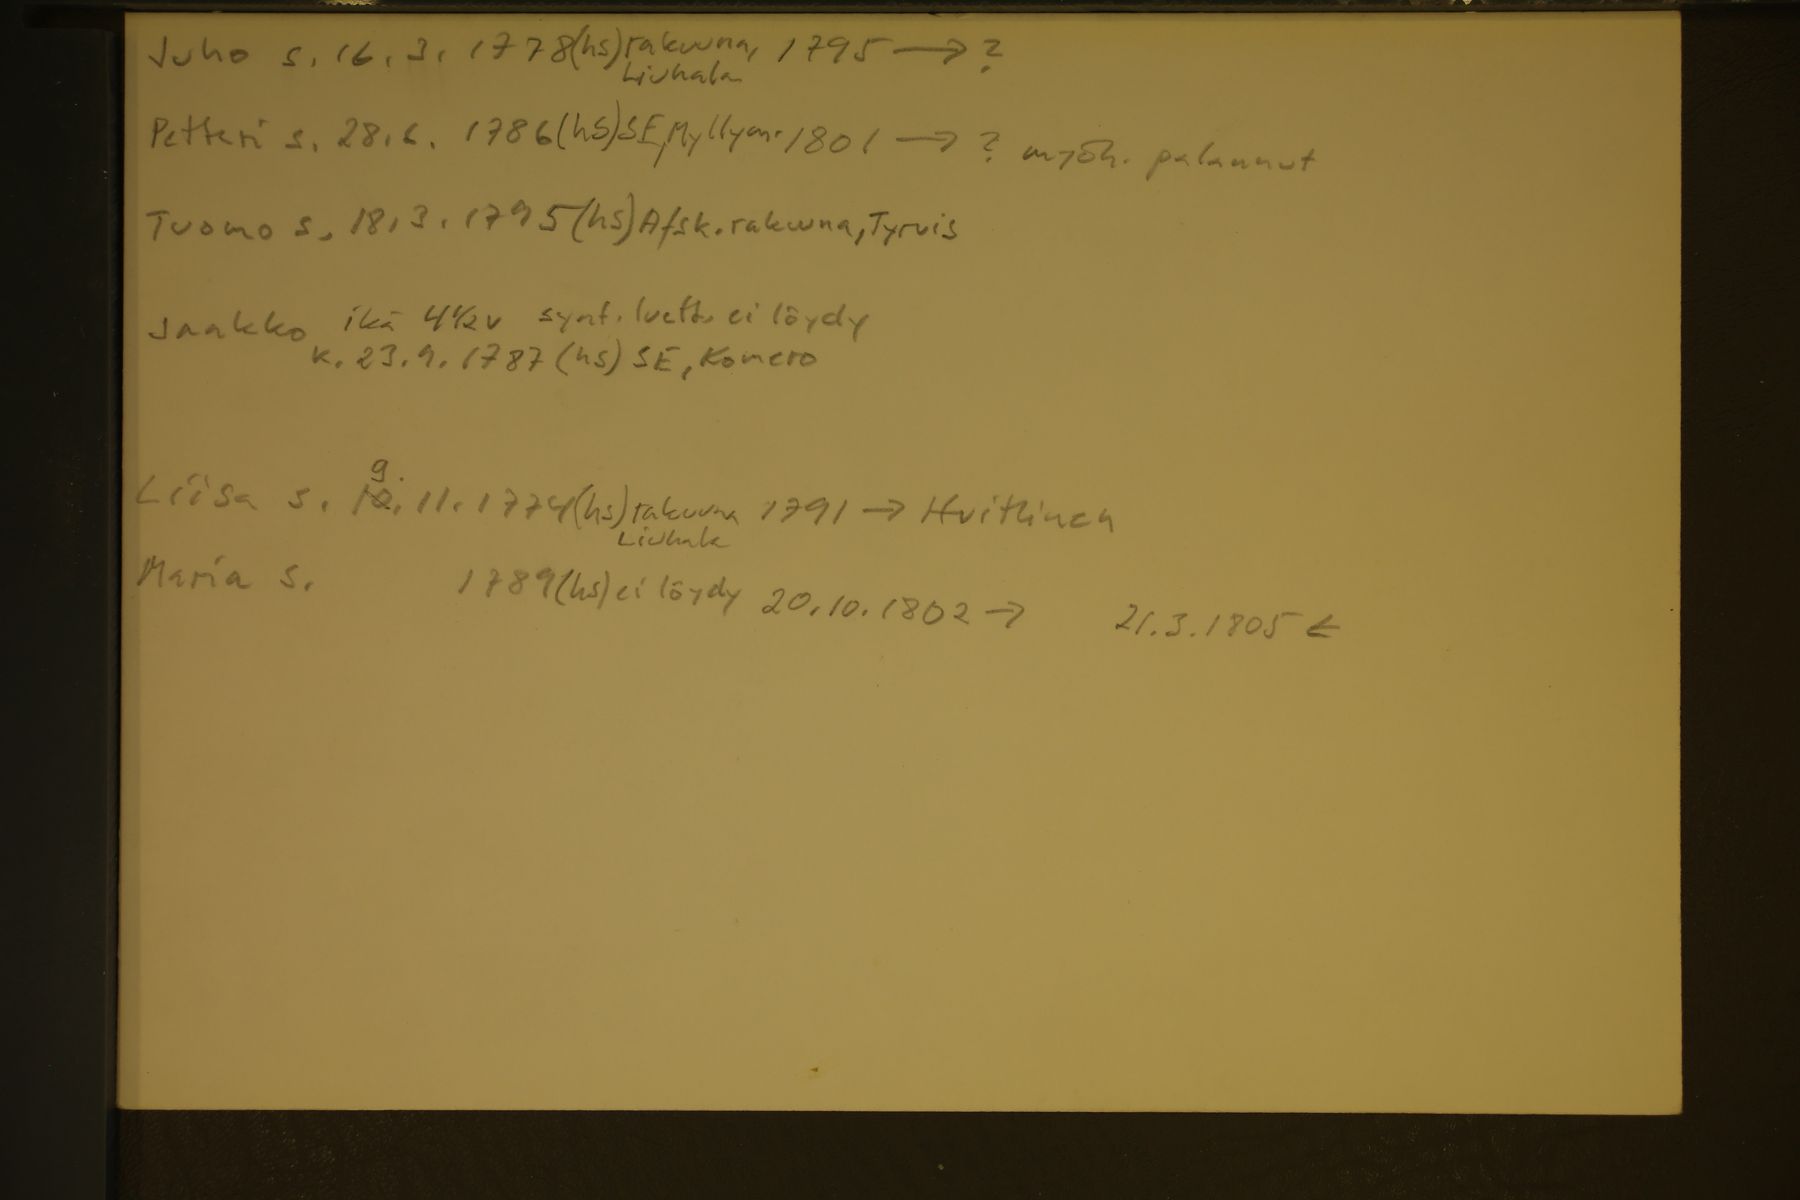 Juho s. 16.3. 1778(hs) rakuuna, 1795 → ?
Liuhala
Petteri s. 28.6. 1786(hs) SE, Myllym. 1801 → ? myöh. palannut
Tuomo s. 18.3. 1795(hs) Afsk. rakuuna, Tyrvis
Jaakko ikä 4½ v synt. luett. ei löydy
k. 23.9. 1787 (hs) SE, Komero
9.
Liisa s. 10. 11. 1774(hs) rakuuna 1791 → Hvittinen
Liuhala
Maria s. 1789(hs) ei löydy 20.10.1802 → 21.3.1805 ←